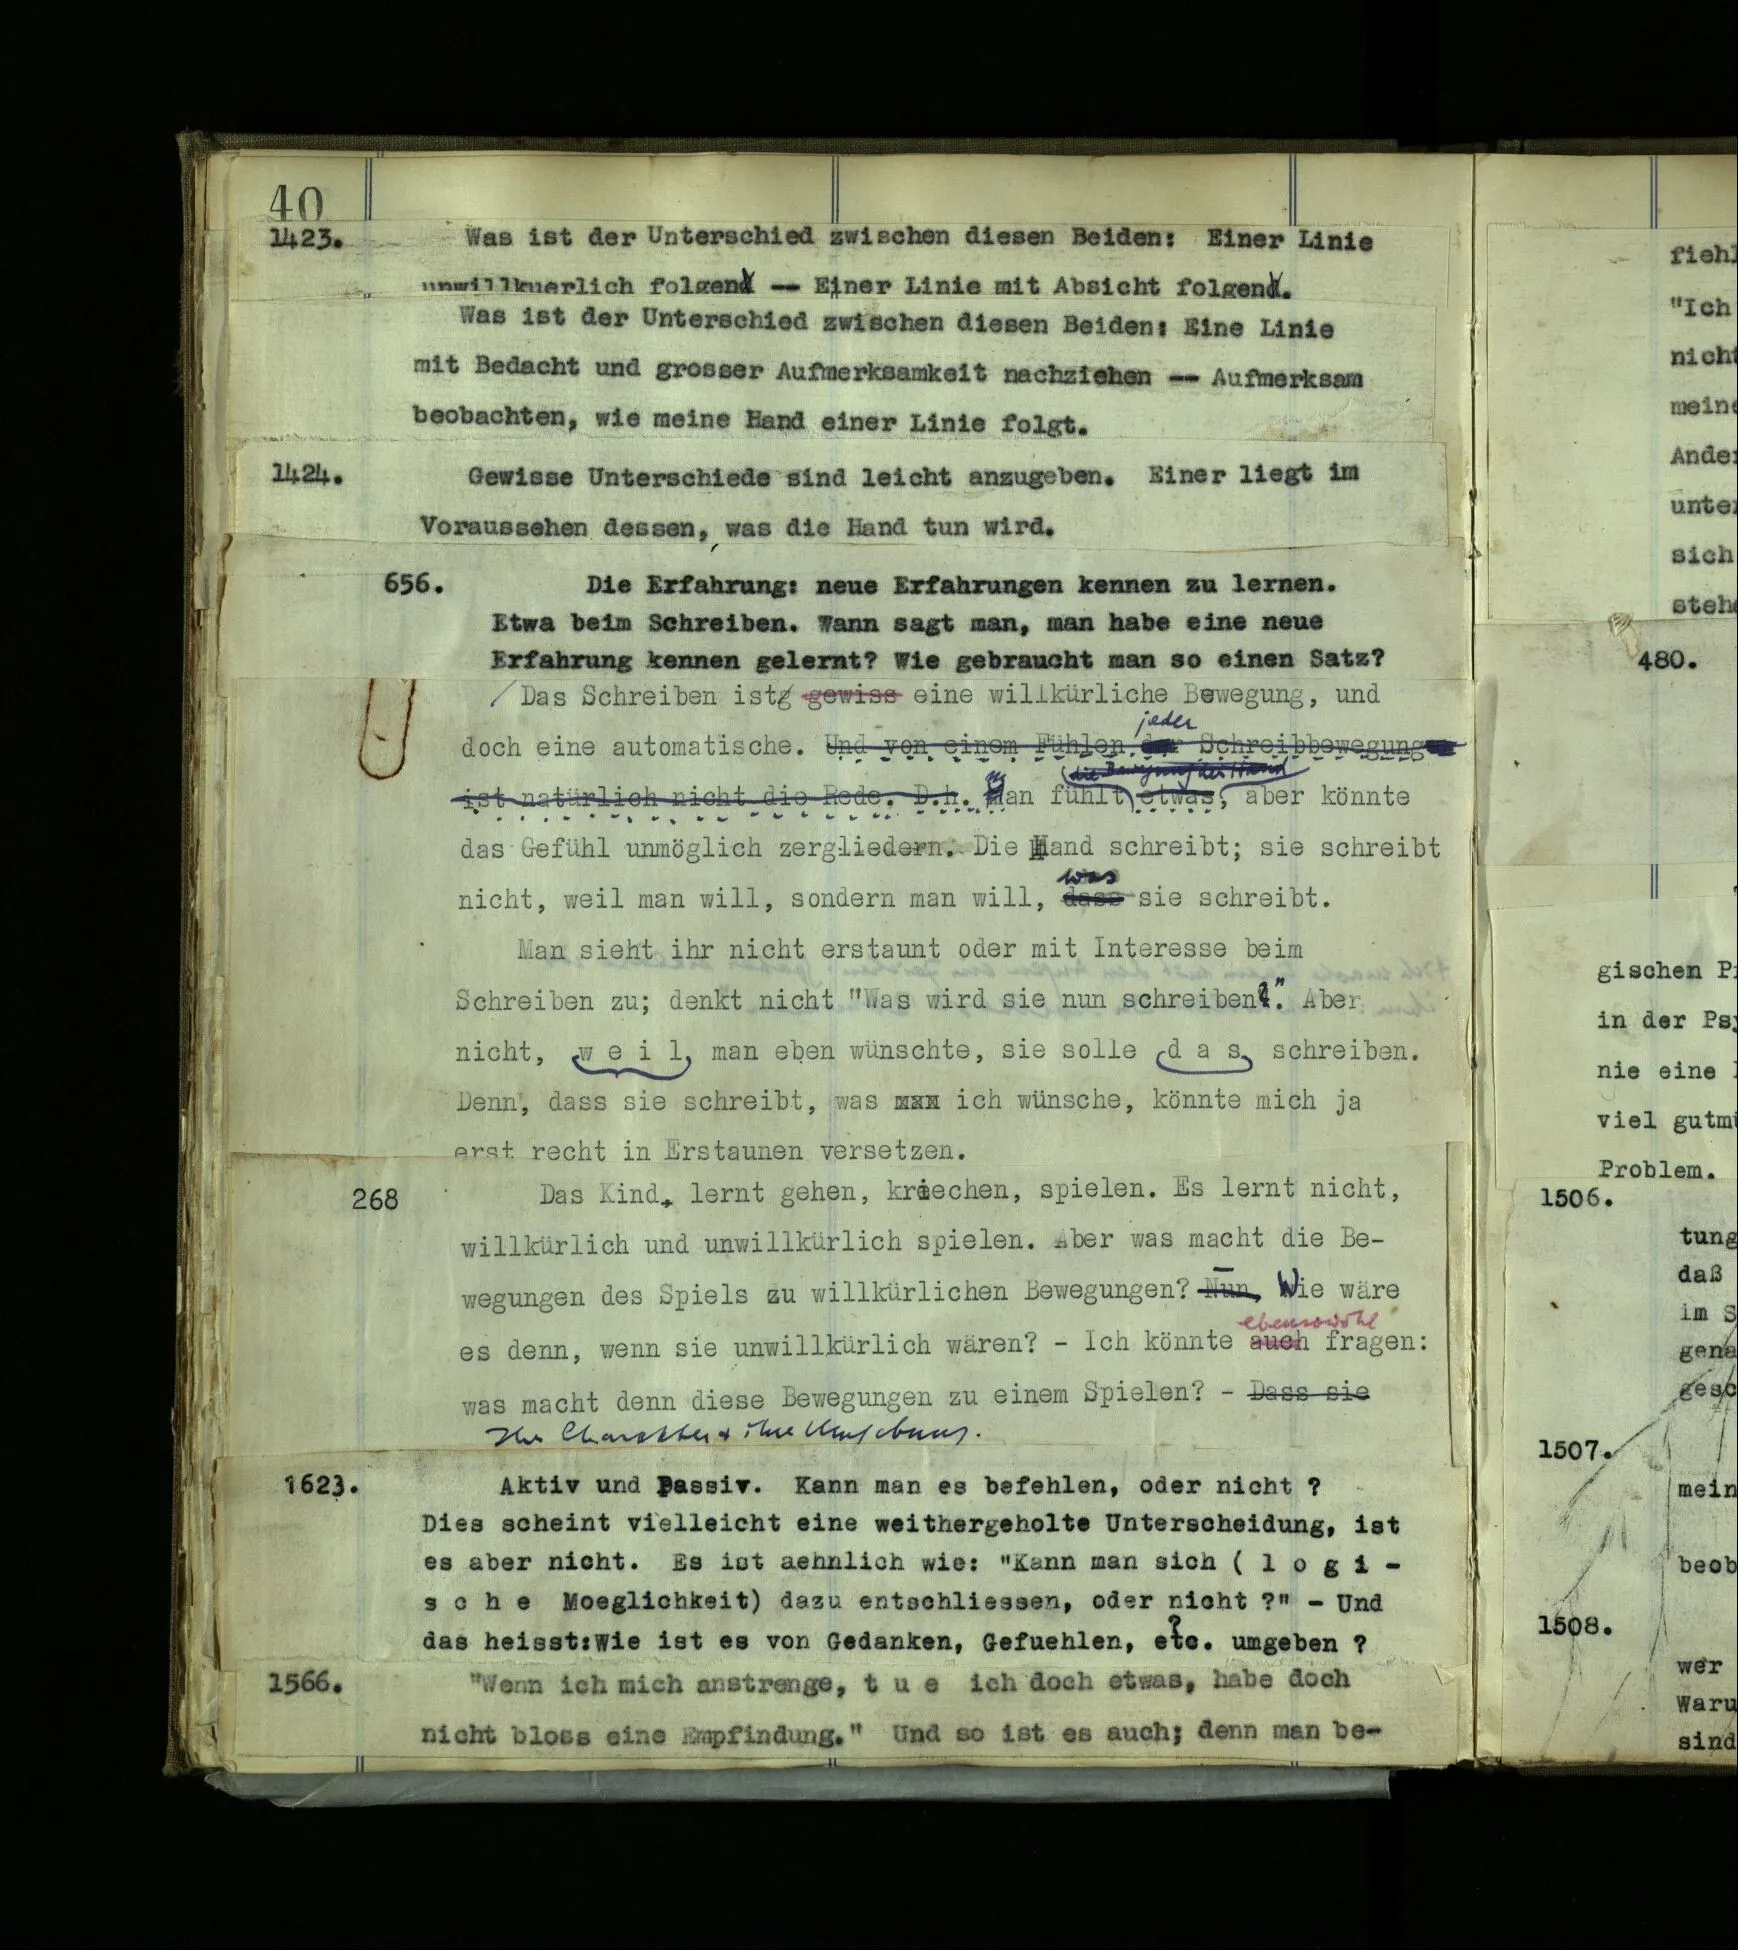 40
1423. Was ist der Unterschied zwischen diesen Beiden: Einer Linie
unwillkuerlich folgen -- Einer Linie mit Absicht folgen.
Was ist der Unterschied zwischen diesen Beiden: Eine Linie
mit Bedacht und grosser Aufmerksamkeit nachziehen -- Aufmerksam
beobachten, wie meine Hand einer Linie folgt.
1424. Gewisse Unterschiede sind leicht anzugeben. Einer liegt im
Voraussehen dessen, was die Hand tun wird.
656. Die Erfahrung: neue Erfahrungen kennen zu lernen.
Etwa beim Schreiben. Wann sagt man, man habe eine neue
Erfahrung kennen gelernt? Wie gebraucht man so einen Satz?
Das Schreiben ist gewiss eine willkürliche Bewegung, und
jeder
doch eine automatische. Und von einem Fühlen der Schreibbewegung
die Bewegung der Hand
ist natürlich nicht die Rede. D.h. Man fühlt etwas, aber könnte
das Gefühl unmöglich zergliedern. Die Hand schreibt; sie schreibt
was
nicht, weil man will, sondern man will, dass sie schreibt.
Man sieht ihr nicht erstaunt oder mit Interesse beim
Schreiben zu; denkt nicht "Was wird sie nun schreiben?". Aber
nicht, w e i l man eben wünschte, sie solle d a s schreiben.
Denn, dass sie schreibt, was xxx ich wünsche, könnte mich ja
erst recht in Erstaunen versetzen.
268 Das Kind lernt gehen, kriechen, spielen. Es lernt nicht,
willkürlich und unwillkürlich spielen. Aber was macht die Be-
wegungen des Spiels zu willkürlichen Bewegungen? – Nun, Wie wäre
ebensowohl
es denn, wenn sie unwillkürlich wären? - Ich könnte auch fragen:
was macht denn diese Bewegungen zu einem Spielen? - Dass sie
Ihr Charakter & ihre Umgebung.
1623. Aktiv und Passiv. Kann man es befehlen, oder nicht ?
Dies scheint vielleicht eine weithergeholte Unterscheidung, ist
es aber nicht. Es ist aehnlich wie: "Kann man sich ( l o g i -
s c h e Moeglichkeit) dazu entschliessen, oder nicht ?" - Und
das heisst:Wie ist es von Gedanken, Gefuehlen, etc. umgeben ?
1566. "Wenn ich mich anstrenge, t u e ich doch etwas, habe doch
nicht bloss eine Empfindung." Und so ist es auch; denn man be-
fiehl
"Ich
nicht
meine
Ander
unter
sich
stehe
480.
gischen P
in der Psy
nie eine
viel gutmü
Problem.
1506.
tung
daß
im S
gena
gesc
1507.
mein
beob
1508.
wer
Waru
sind